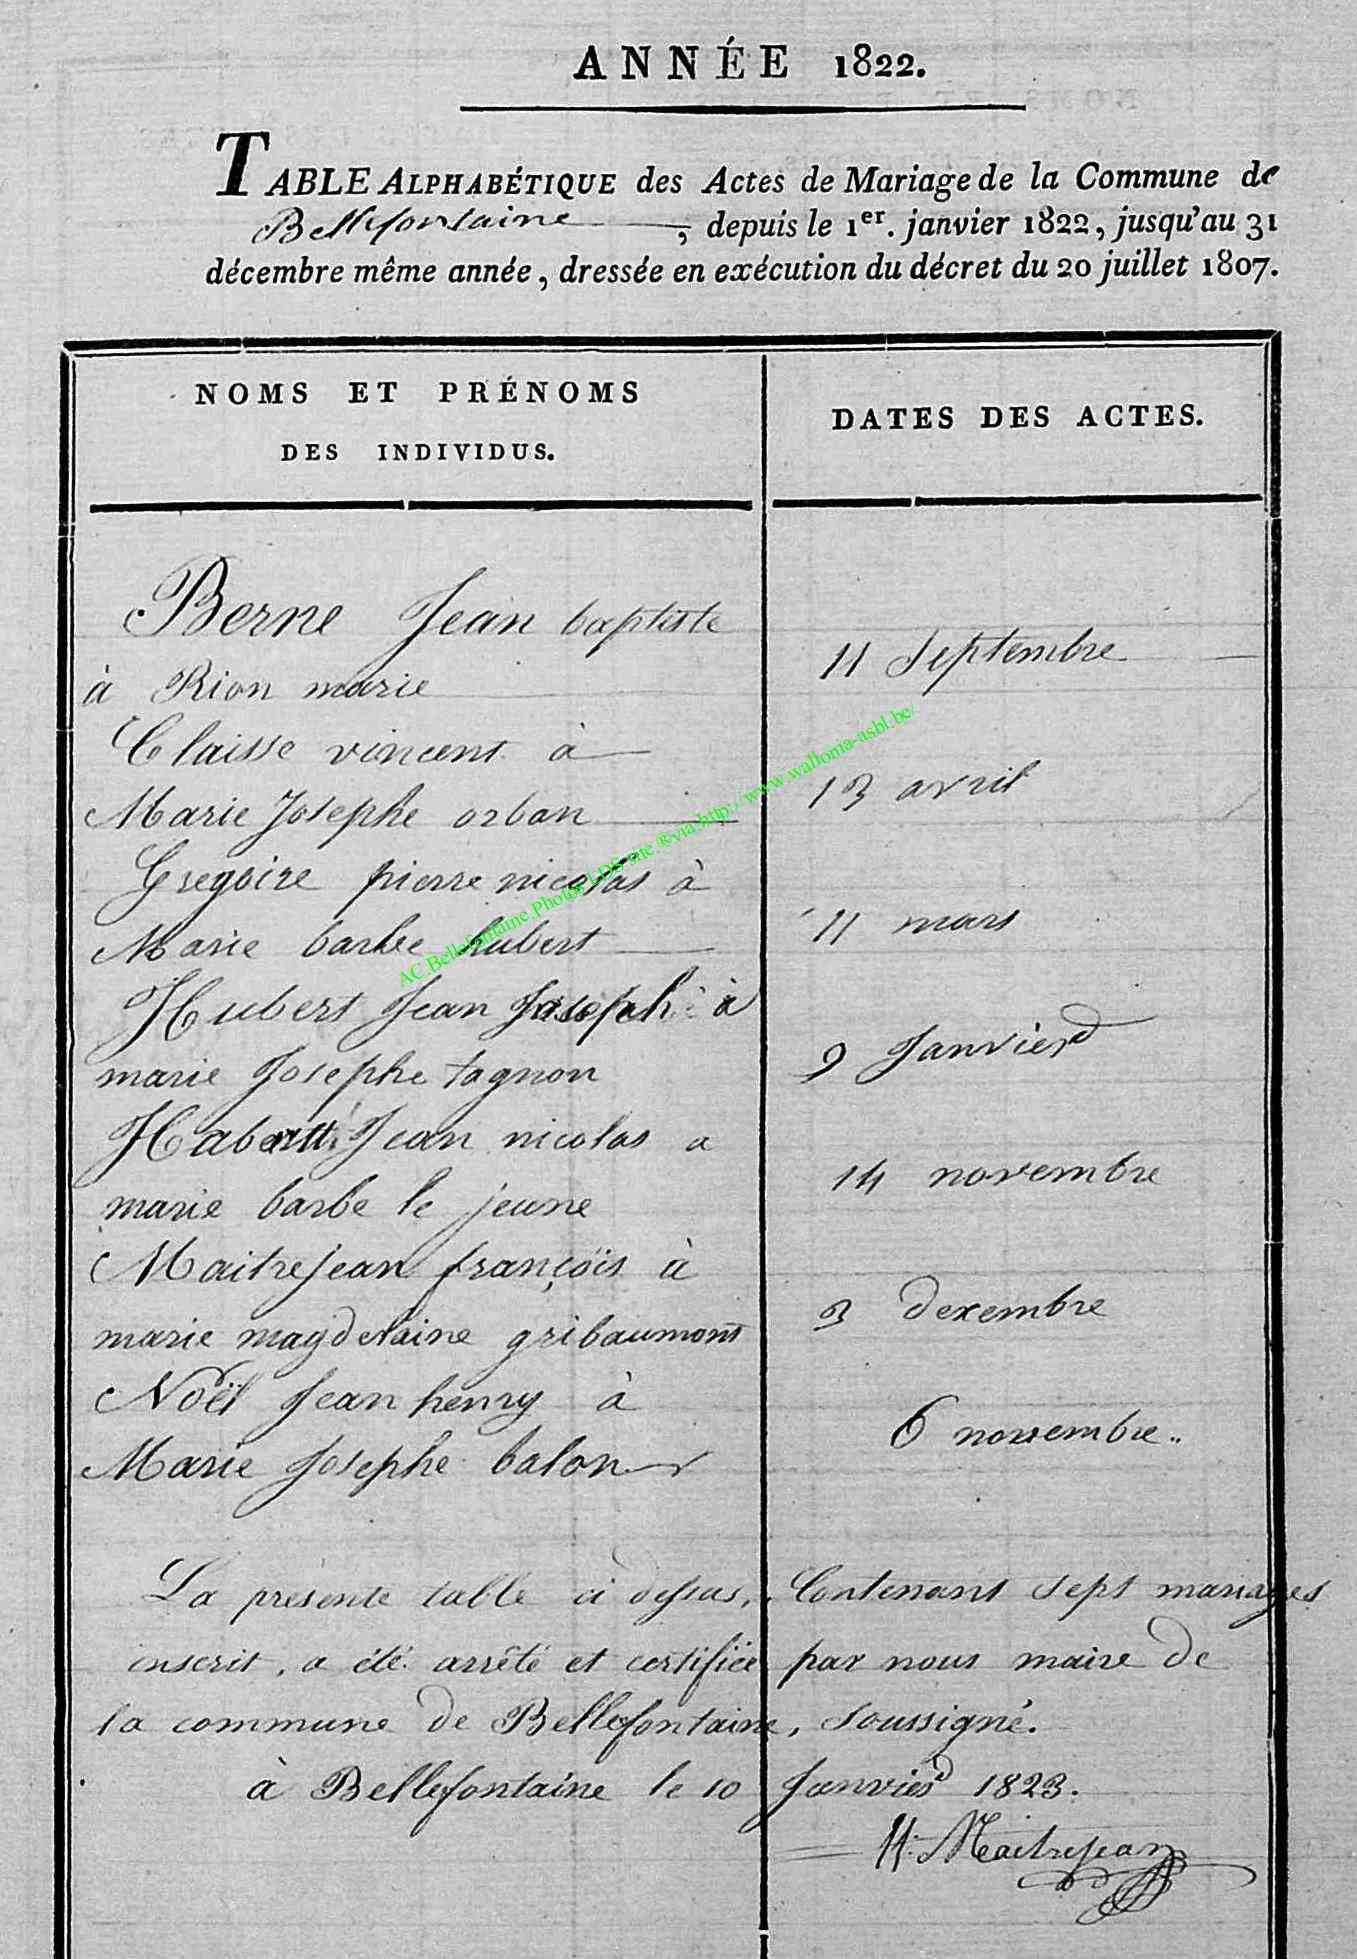 ANNÉE 1822.
TABLE ALPHABÉTIQUE des Actes de Mariage de la Commune de
Bellefontaine, depuis le 1er. janvier 1822, jusqu'au 31
décembre même année, dressée en exécution du décret du 20 juillet 1807.
NOMS ET PRÉNOMS
DES INDIVIDUS.
DATES DES ACTES.
Berne Jean baptiste
à Rion marie
11 Septembre
Claisse vincent à
Marie Josephe orban
13 avril
Gregoire pierre nicolas à
Marie barbe hubert
11 mars
Hubert Jean Joseph à
marie Josephe tagnon
9 Janvier
Jean nicolas a
marie barbe le jeune
14 novembre
Maitrejean françois à
marie magdelaine gribaumont
3 decembre
Noël Jean henry à
Marie Josephe balon
6 novembre..
La présente table ci dessus, Contenant sept mariages
inscrit, a été arrêté et certifiée par nous maire de
la commune de Bellefontaine, Soussigné.
à Bellefontaine le 10 Janvier 1823.
H. Maitrejean
AC.Bellefontaine.Photos LDS via http://www.wallonia-asbl.be/